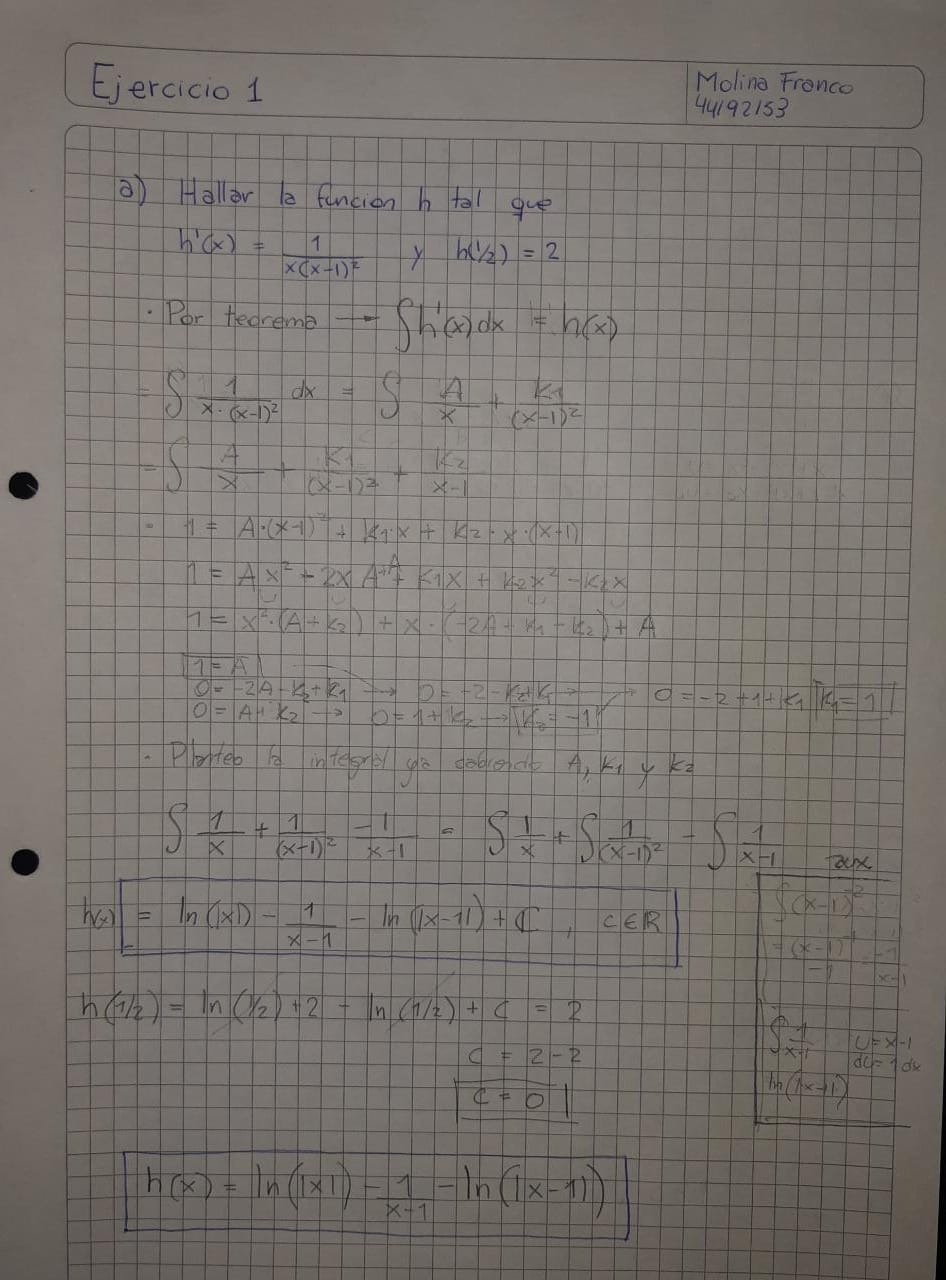 Ejercicio 1
Molina Franco
44192153
a) Hallar la funcion h tal que
h'(x) = 1/(x(x-1)²) y h(1/2) = 2
· Por teorema → ∫h'(x)dx = h(x)
= ∫ 1/(x·(x-1)²) dx = ∫ A/x + K1/(x-1)²
= ∫ A/x + K1/(x-1)² + K2/x-1
· 1 = A·(x-1)² + K1·x + K2·x·(x+1)
1 = Ax² - 2xA + A + K1x + K2x² - K2x
1 = x²·(A+K2) + x·(-2A+K1-K2) + A
1 = A
0 = -2A-K2+K1 → 0 = -2-K2+K1 → 0 = -2+1+K1 K1 = 1
0 = A+K2 → 0 = 1+K2 → K2 = -1
· Planteo la integral ya sabiendo A, K1 y K2
∫ 1/x + 1/(x-1)² -1/x-1 = ∫ 1/x + ∫ 1/(x-1)² - ∫ 1/x-1
h(x) = ln(|x|) - 1/x-1 - ln(|x-1|) + C, C∈R
h(1/2) = ln(1/2) + 2 - ln(1/2) + C = 2
C = 2-2
C = 0
h(x) = ln(|x|) - 1/x-1 - ln(|x-1|)
aux
∫(x-1)⁻²
= (x-1)⁻¹/-1 = -1/x-1
∫ 1/x-1 U = x-1
du = 1 dx
ln(|x-1|)